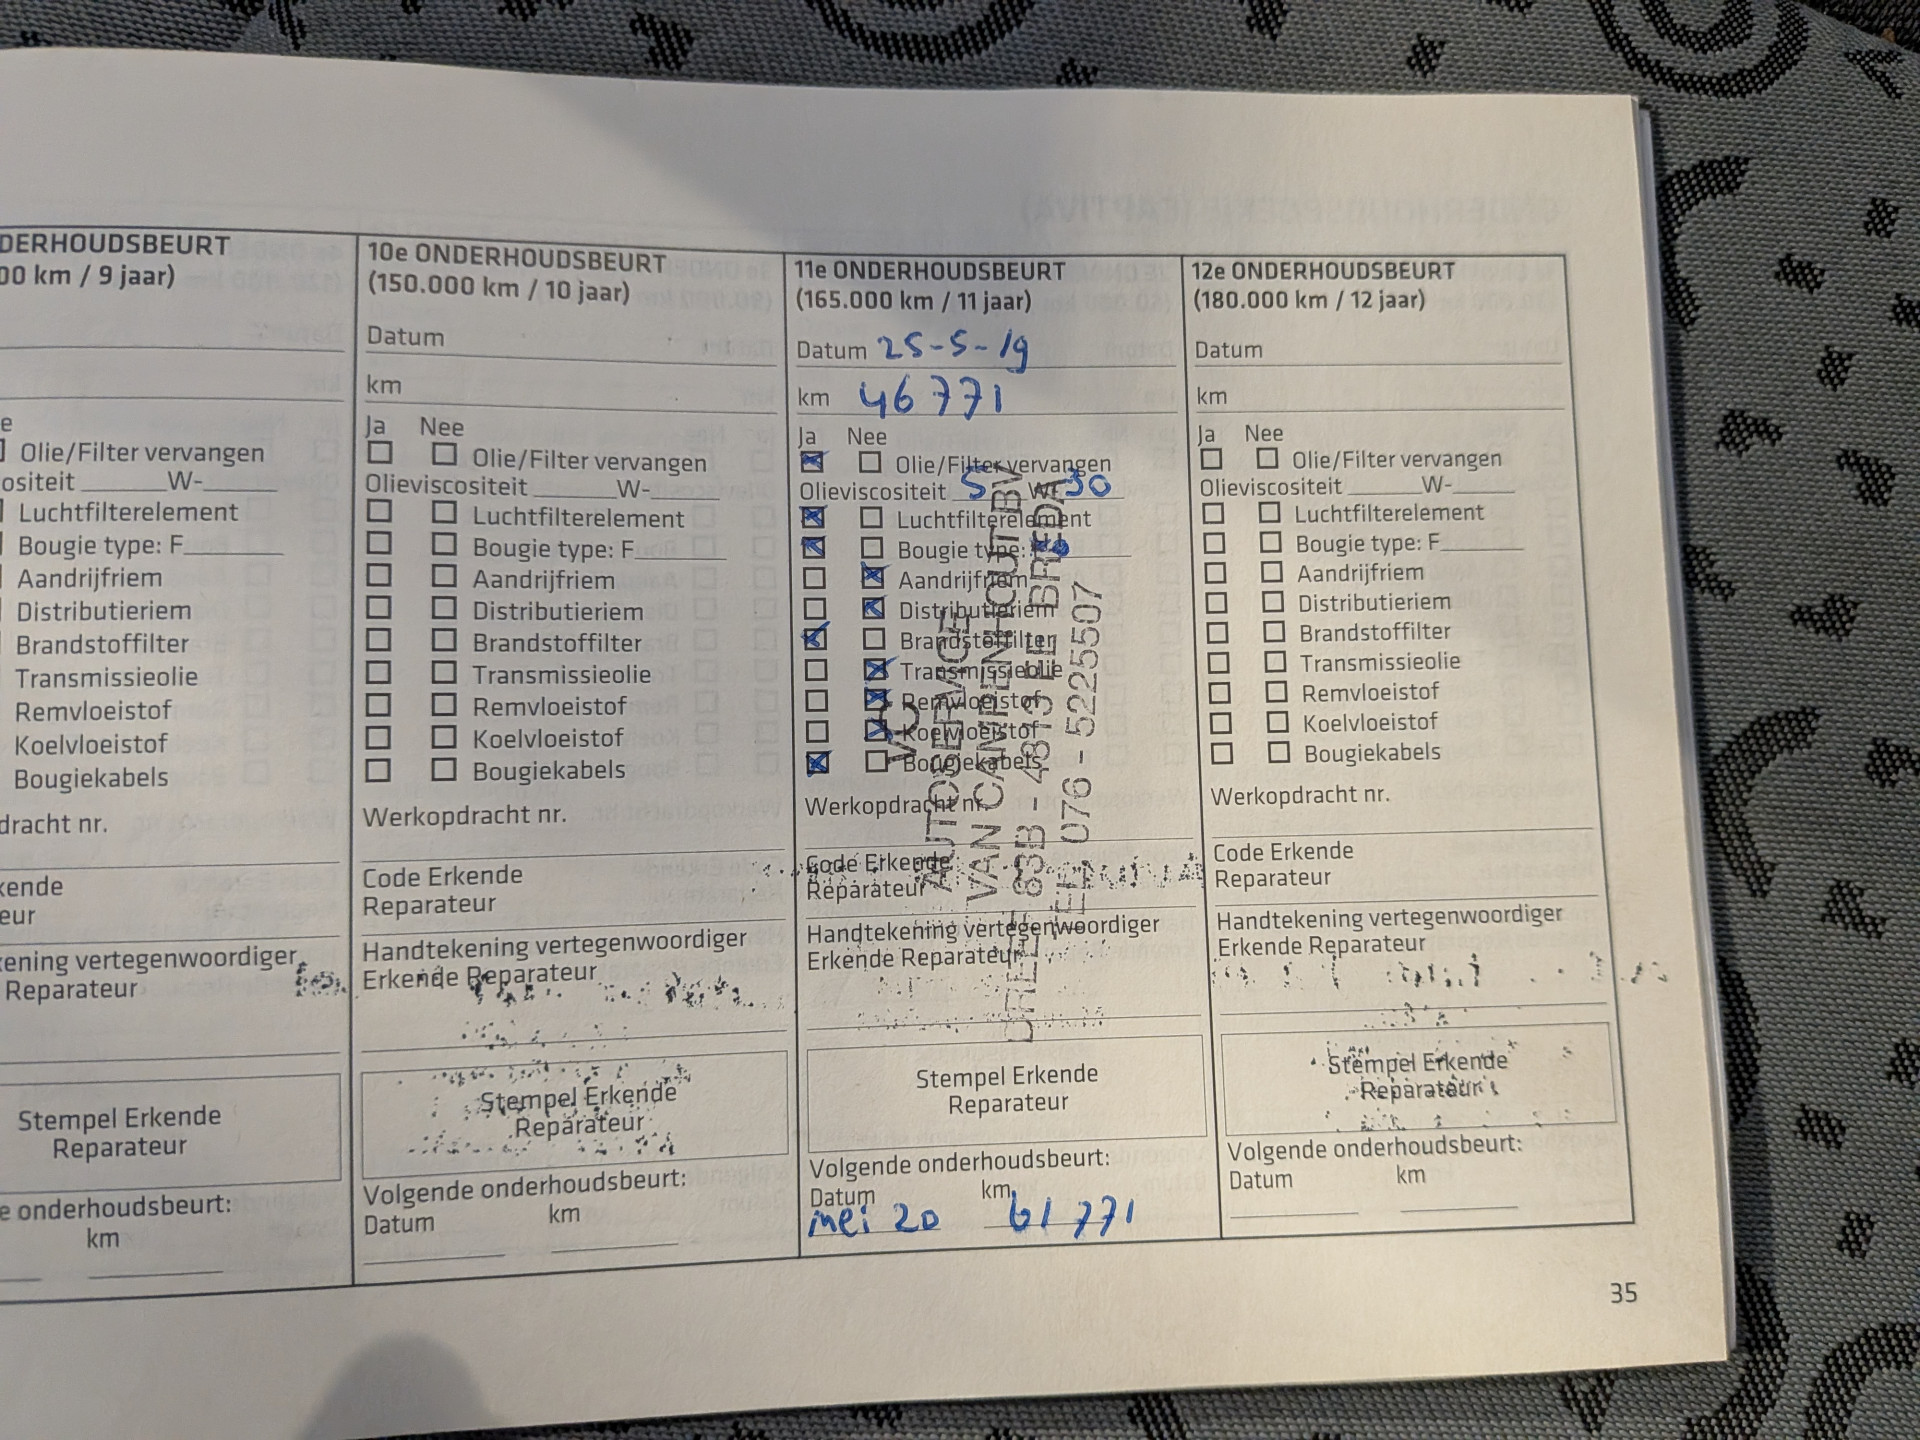 DERHOUDSBEURT
00 km / 9 jaar)
e
Olie/Filter vervangen
ositeit ______W-______
Luchtfilterelement
Bougie type: F______
Aandrijfriem
Distributieriem
Brandstoffilter
Transmissieolie
Remvloeistof
Koelvloeistof
Bougiekabels
dracht nr.
kende
eur
kening vertegenwoordiger
Reparateur
Stempel Erkende
Reparateur
e onderhoudsbeurt:
km
10e ONDERHOUDSBEURT
(150.000 km / 10 jaar)
Datum
km
Ja Nee
Olie/Filter vervangen
Olieviscositeit ______W-______
Luchtfilterelement
Bougie type: F______
Aandrijfriem
Distributieriem
Brandstoffilter
Transmissieolie
Remvloeistof
Koelvloeistof
Bougiekabels
Werkopdracht nr.
Code Erkende
Reparateur
Handtekening vertegenwoordiger
Erkende Reparateur
Stempel Erkende
Reparateur
Volgende onderhoudsbeurt:
Datum km
11e ONDERHOUDSBEURT
(165.000 km / 11 jaar)
Datum 25-5-19
km 46771
Ja Nee
Olie/Filter vervangen
Olieviscositeit 5 W- 30
Luchtfilterelement
Bougie type:
Aandrijfriem
Distributieriem
Brandstoffilter
Transmissieolie
Remvloeistof
Koelvloeistof
Bougiekabels
Werkopdracht nr.
Code Erkende
Reparateur
Handtekening vertegenwoordiger
Erkende Reparateur
AUTOSERVICE
VAN CAMPENHOUT BV
83B - 4813 LE BREDA
076 - 5225507
Stempel Erkende
Reparateur
Volgende onderhoudsbeurt:
Datum km
mei 20 61771
12e ONDERHOUDSBEURT
(180.000 km / 12 jaar)
Datum
km
Ja Nee
Olie/Filter vervangen
Olieviscositeit ______W-______
Luchtfilterelement
Bougie type: F______
Aandrijfriem
Distributieriem
Brandstoffilter
Transmissieolie
Remvloeistof
Koelvloeistof
Bougiekabels
Werkopdracht nr.
Code Erkende
Reparateur
Handtekening vertegenwoordiger
Erkende Reparateur
Stempel Erkende
Reparateur
Volgende onderhoudsbeurt:
Datum km
35